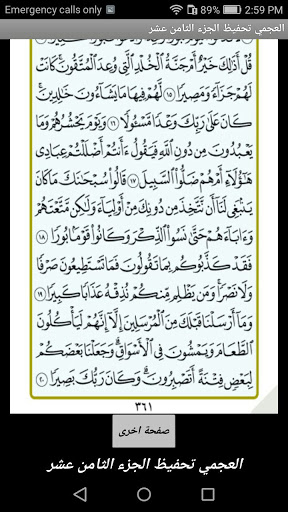 Emergency calls only
89% 2:59 PM
العجمي تحفيظ الجزء الثامن عشر
قُلْ أَذَٰلِكَ خَيْرٌ أَمْ جَنَّةُ ٱلْخُلْدِ ٱلَّتِى وُعِدَ ٱلْمُتَّقُونَ ۚ كَانَتْ
لَهُمْ جَزَآءً وَمَصِيرًا ١٥ لَّهُمْ فِيهَا مَا يَشَآءُونَ خَٰلِدِينَ ۚ
كَانَ عَلَىٰ رَبِّكَ وَعْدًا مَّسْـُٔولًا ١٦ وَيَوْمَ يَحْشُرُهُمْ وَمَا
يَعْبُدُونَ مِن دُونِ ٱللَّهِ فَيَقُولُ ءَأَنتُمْ أَضْلَلْتُمْ عِبَادِى
هَٰٓؤُلَآءِ أَمْ هُمْ ضَلُّوا۟ ٱلسَّبِيلَ ١٧ قَالُوا۟ سُبْحَٰنَكَ مَا كَانَ
يَنۢبَغِى لَنَآ أَن نَّتَّخِذَ مِن دُونِكَ مِنْ أَوْلِيَآءَ وَلَٰكِن مَّتَّعْتَهُمْ
وَءَابَآءَهُمْ حَتَّىٰ نَسُوا۟ ٱلذِّكْرَ وَكَانُوا۟ قَوْمًۢا بُورًا ١٨
فَقَدْ كَذَّبُوكُم بِمَا تَقُولُونَ فَمَا تَسْتَطِيعُونَ صَرْفًا
وَلَا نَصْرًا ۚ وَمَن يَظْلِم مِّنكُمْ نُذِقْهُ عَذَابًا كَبِيرًا ١٩
وَمَآ أَرْسَلْنَا قَبْلَكَ مِنَ ٱلْمُرْسَلِينَ إِلَّآ إِنَّهُمْ لَيَأْكُلُونَ
ٱلطَّعَامَ وَيَمْشُونَ فِى ٱلْأَسْوَاقِ ۗ وَجَعَلْنَا بَعْضَكُمْ
لِبَعْضٍ فِتْنَةً أَتَصْبِرُونَ ۗ وَكَانَ رَبُّكَ بَصِيرًا ٢٠
٣٦١
صفحة اخرى
العجمي تحفيظ الجزء الثامن عشر